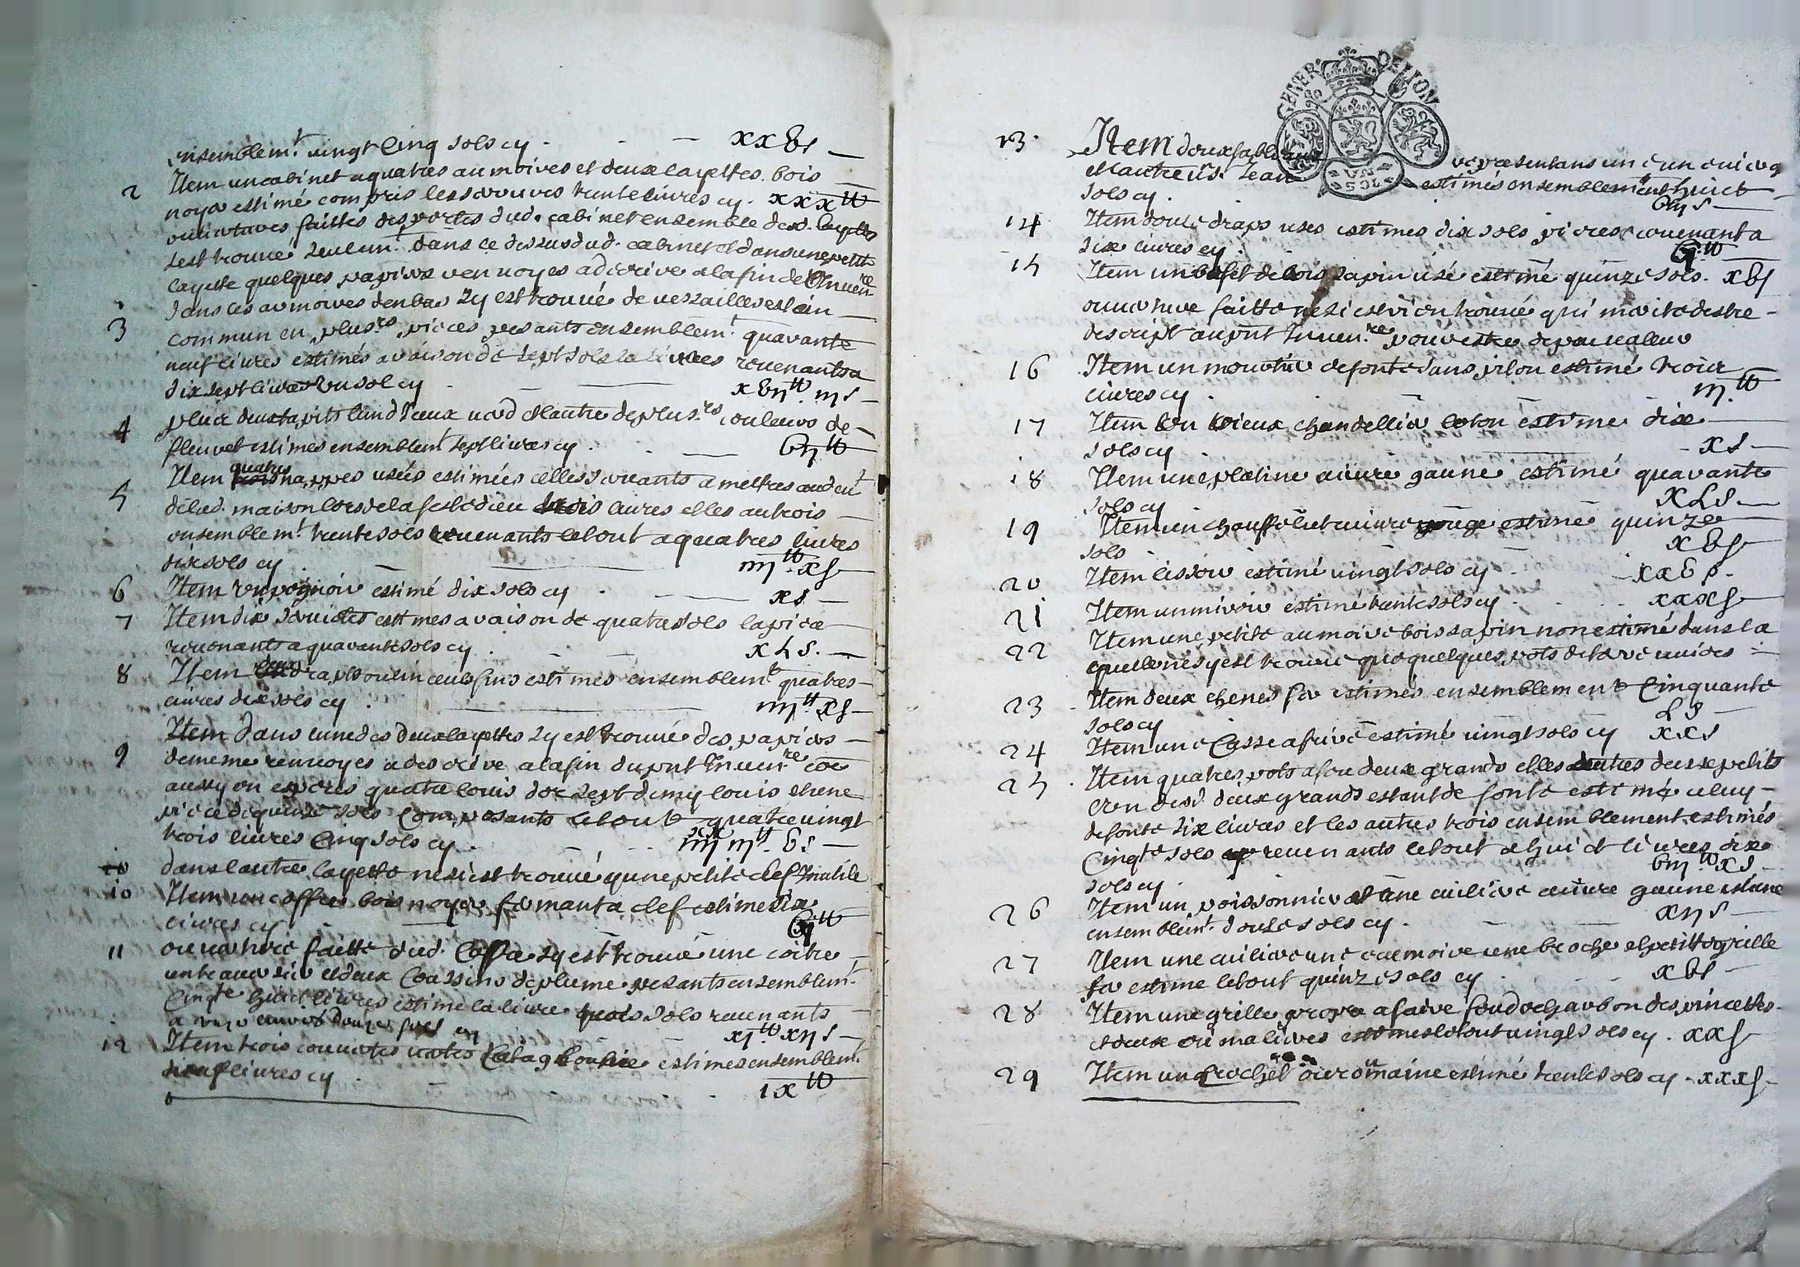 ensemblemt. vingt Cinq sols cy . - - xxbs
2 Item un cabinet a quatres aumoires et deux layettes bois
noyer estimé compris les serrures trente livres cy . xxx tt
ouvertures faittes des portes dud. cabinet ensemble desd. layettes
s'est trouvé seulemt. dans le dessus dud. cabinet et dans une petitte
layette quelques papiers renvoyes a décrire a la fin de l'Inven.re
dans les aumoires d'en bas s'y est trouvé de vessailles estain
3 commun en plus.rs pieces pesants ensemblemt. quarante
neuf livres estimés a raison de sept sols la livres revenants a
dix sept livres sols cy xbij tt iij s
4 plus deux tapits l'un d'eux verd et l'autre de plus.rs couleurs de
fleuret estimés ensemblemt sept livres cy . bij tt
5 Item quatre nappes usées estimées celles servants a mettres au devt
de lad. maison lors de la feste dieu trois livres et les au trois
ensemblemt. trente sols revenants le tout a quatres livres
dix sols cy iiij tt xs
6 Item estimé dix sols cy xs
7 Item dix serviettes estimes a raison de quatre sols la piece
revenants a quarante sols cy . xLs.
8 Item deux fins estimés ensemblemt quatres
livres dix sols cy . iiij tt xs
Item dans l'une des deux layettes s'y est trouvé des papiers
9 de meme renvoyes a descrire a la fin du pnt Inven.re
aussy en especes quatre louis d'or sept demy louis et une
piece de quinze sols composants le tout quatre vingt
trois livres cinq sols cy . iiij xx iij tt bs
10 dans l'autre layette ne s'i est trouvé qu'une petite clef Inutile
10 Item un coffre bois noyer fermant a clef estimé six
livres cy . bj tt
11 ouverture faitte dud. s'y est trouvé une coitre
un traversier et deux Coassins de plume pesants ensemblemt.
Cinqte huit livres estimé la livre quatre sols revenants
a onze livres douze sols cy xj tt xij s
12 Item trois estimes ensemblemt.
neuf livres cy ix tt
13 Item deux tables representans un
et l'autre St. Jean estimés ensemblement huict
sols cy . biij s
14 Item douze draps uses estimes dix sols piece revenant a
six livres cy bj tt
15 Item un de bois sapin usé estimé quinze sols . xbs
ouverture faitte ne s'i est rien trouvé qui merite d'estre
descript au pnt Inven.re pour estre de peu valeur
16 Item un mortier de fonte sans pilon estimé trois
livres cy . iij tt
17 Item un vieux chandellier loton estimé dix
sols cy . xs
18 Item une platine cuivre gaune estimé quarante
sols cy xLs
19 Item un chauffelict cuivre rouge estimé quinze
sols xbs
20 Item estimé vingt sols cy
21 Item un miroir estimé trente sols cy xxxs
22 Item une petite aumoire bois sapin non estimé dans la
quelle ne s'y est trouvé que quelques pots de terre vuides
23 Item deux chenes fer estimés ensemblement Cinquante
sols cy Ls
24 Item une Casse a frire estimé vingt sols cy xxs
25 Item quatres pots a feu deux grands et les autres deux petits
l'un desd. deux grands estant de fonte estimé celuy
de fonte six livres et les autres trois ensemblement estimés
Cinqte sols revenants le tout a huict livres dix
sols cy . biij tt xs
26 Item un poissonnier et une cuiliere cuivre gaune
ensemblemt. douze sols cy . xij s
27 Item une cuiliere une une broche et petitte grille
fer estimé le tout quinze sols cy xbs
28 Item une grille propre a faire feu de charbon des pincettes
et deux le tout vingt sols cy . xxs
29 Item un Crochet ou romaine estimé trente sols cy . xxxs
GENER DE LION